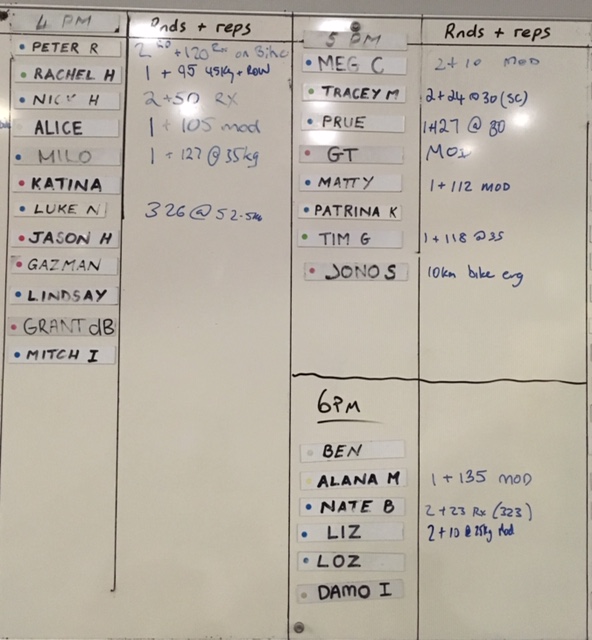 4 PM Rnds + reps
PETER R +120 Rx on Bike
RACHEL H 1 + 95 45kg + ROW
NICK H 2+50 RX
ALICE 1 + 105 mod
MILO 1 + 127 @ 35kg
KATINA
LUKE N 326 @ 52.5kg
JASON H
GAZMAN
LINDSAY
GRANT dB
MITCH I
5 PM Rnds + reps
MEG C 2+10 MOD
TRACEY M 2+24 @30 (SC)
PRUE 1+27 @ 30
GT
MATTY 1+112 MOD
PATRINA K
TIM G 1+118 @35
JONO S 10km bike erg
6PM
BEN
ALANA M 1+135 MOD
NATE B 2+23 Rx (323)
LIZ 2+10 @ 25kg Mod
LOZ
DAMO I